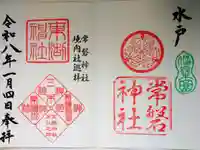 水戸
常磐
神社
常磐神社
境内社巡拝
東湖
神社
三木
神社
令和八年一月四日奉拝